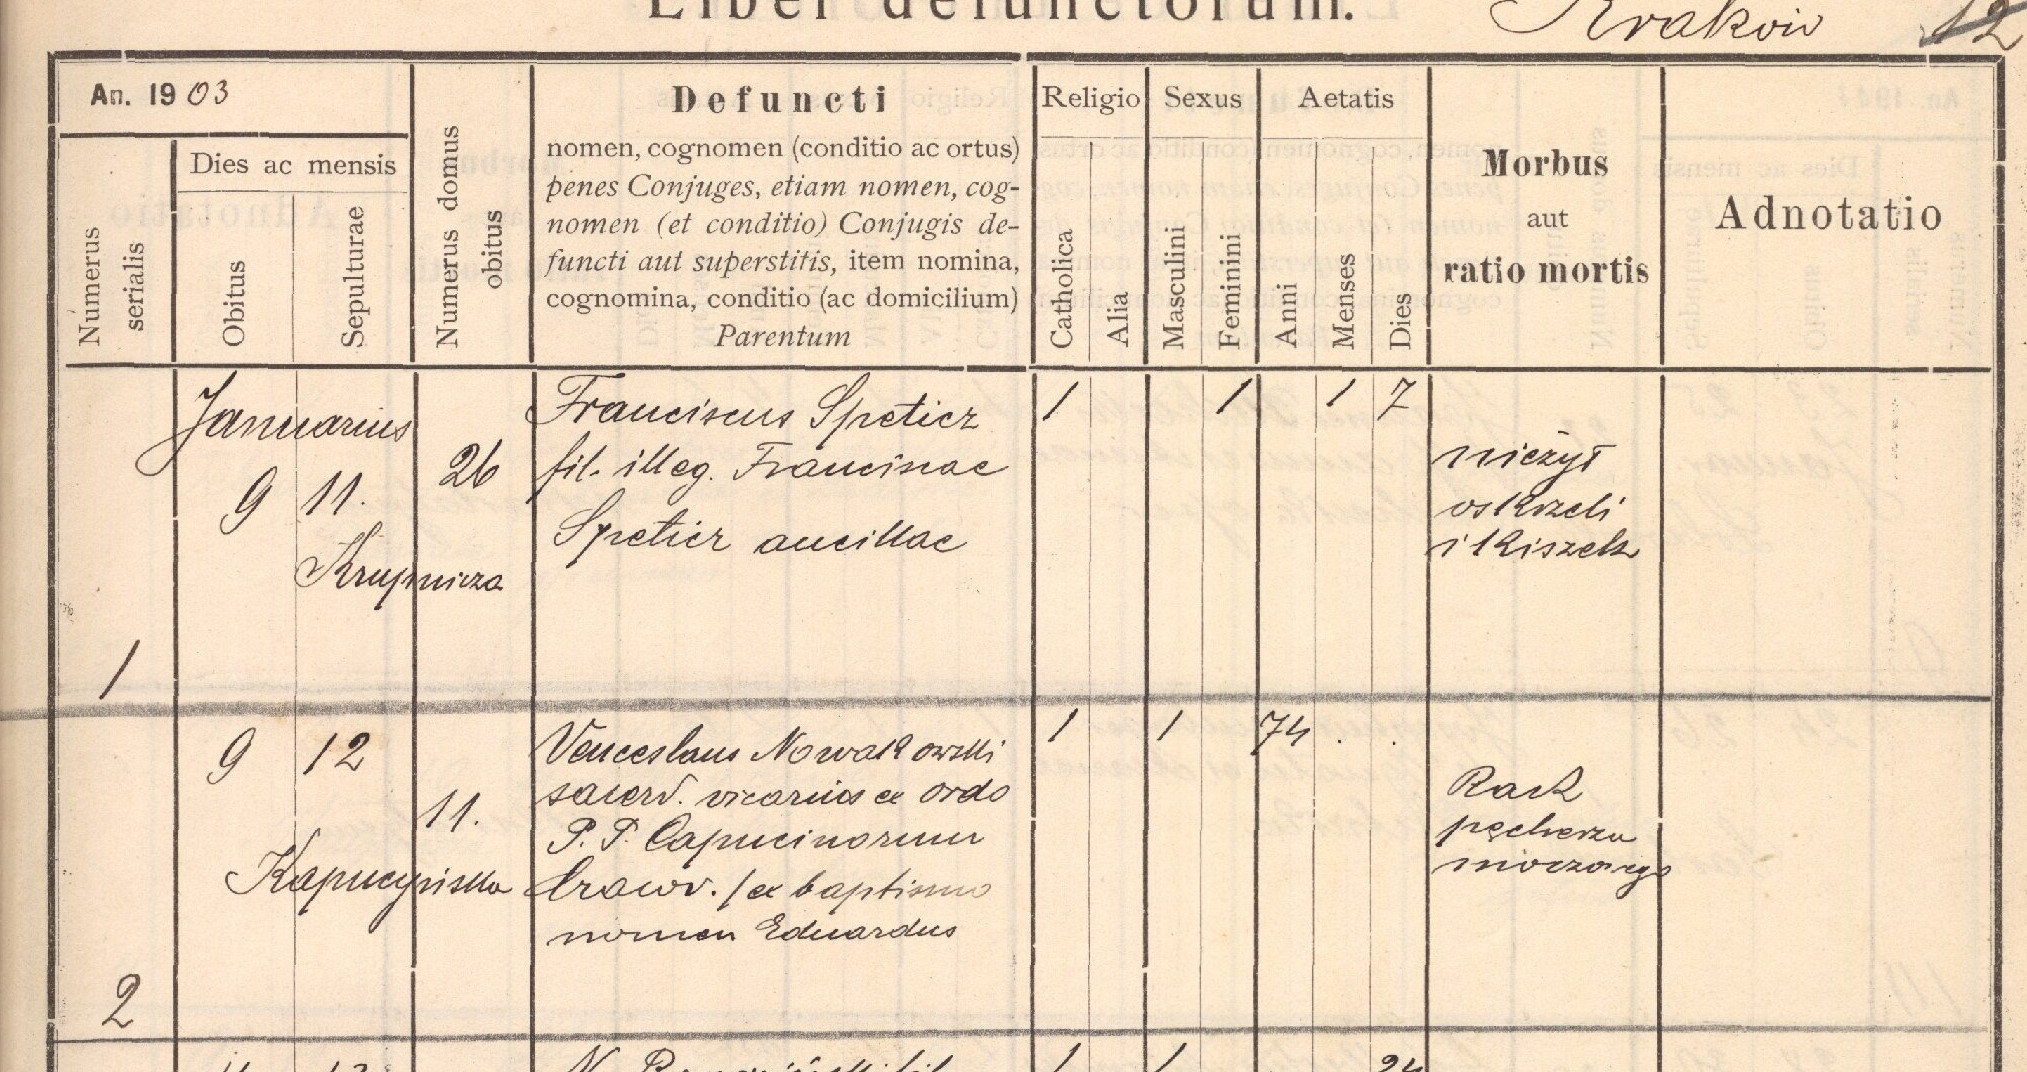 Liber defunctorum.
Kraków 12
An. 1903
Numerus serialis
Dies ac mensis
Obitus
Sepulturae
Numerus domus obitus
Defuncti
nomen, cognomen (conditio ac ortus)
penes Conjuges, etiam nomen, cog-
nomen (et conditio) Conjugis de-
functi aut superstitis, item nomina,
cognomina, conditio (ac domicilium)
Parentum
Religio
Catholica
Alia
Sexus
Masculini
Feminini
Aetatis
Anni
Menses
Dies
Morbus
aut
ratio mortis
Adnotatio
1
Januarius
9 11.
Krupnicza
26
Franciscus Speticz
fil. illeg. Franciscae
Speticz ancillae
1 1 1 7
nieżyt
oskrzeli
i kiszek
2
9 12
Kapucyńska
11.
Venceslaus Nowakowski
sacerd. vicarius ex ordo
P. P. Capucinorum
Cracov. / ex baptismo
nomen Eduardus
1 1 74
Rak
pęcherza
moczowego
1 1 24